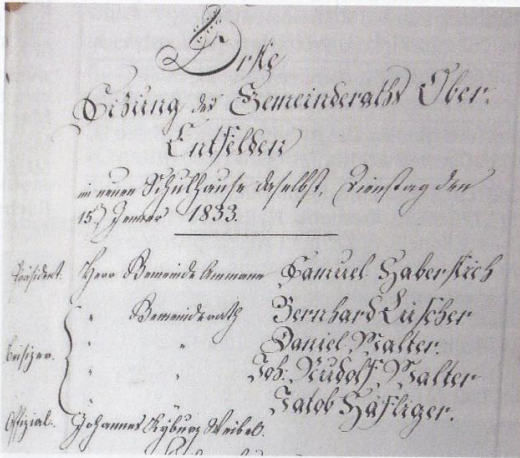 Erste
Sitzung des Gemeinderaths Ober-
Entfelden
im neuen Schulhause daselbst, Dienstag den
15. Jenner 1833.
Präsident. Herr Gemeinde Ammann Samuel Haberstich
" Gemeinderath Bernhard Lüscher
" " Daniel Walter.
Beisizer. " " Joh. Rudolf Walter
" Jakob Häfliger.
Offizial. Johannes Kyburz Weibel.